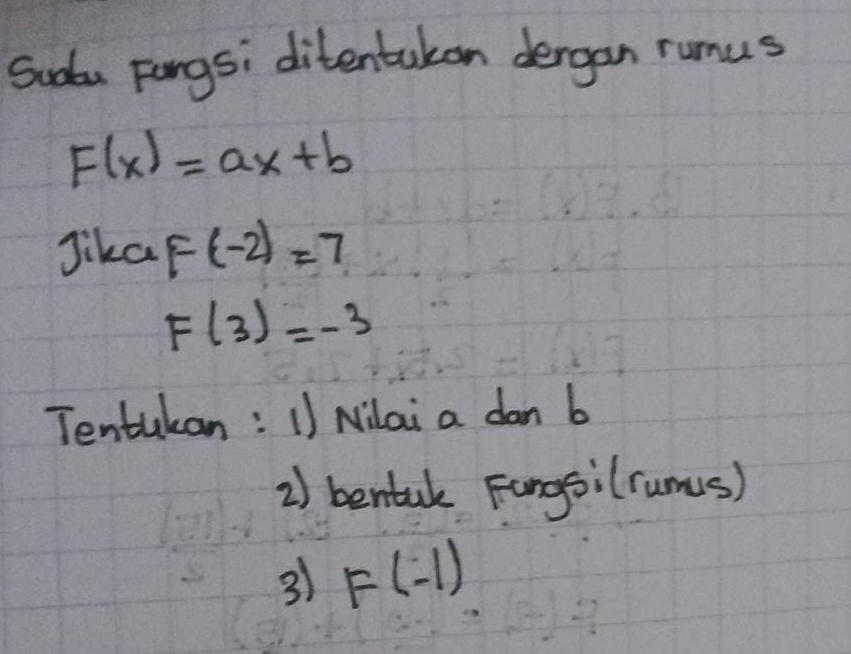 Suatu Fungsi ditentukan dengan rumus
F(x) = ax + b
Jika F(-2) = 7
F(3) = -3
Tentukan : 1) Nilai a dan b
2) bentuk Fungsi (rumus)
3) F(-1)